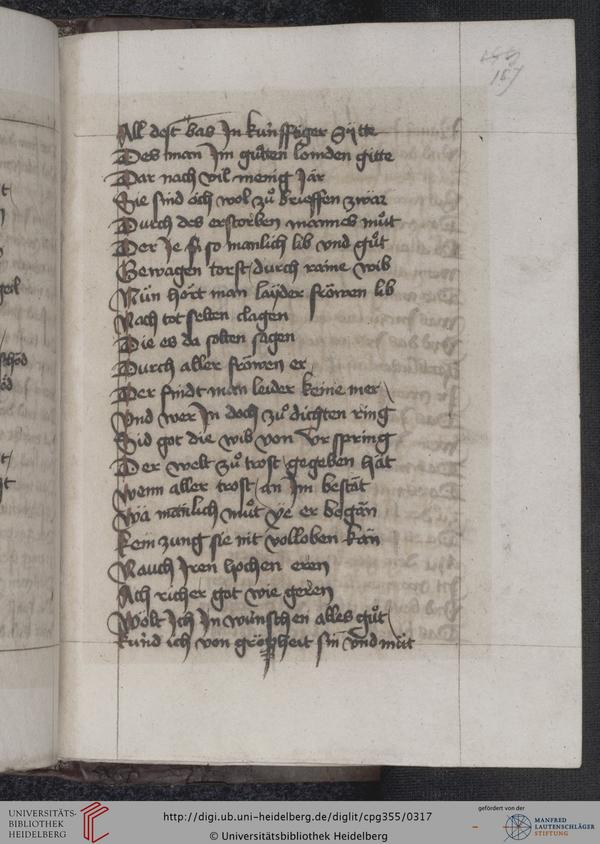 157
All dest bas In kunfftiger Sitte
Des man Im gůten lomden gitte
Dar nach vil menig Jar
Sie sind och wol zů brieffen zwar
Durch des erstorben mannes můt
Der Je si so manlich lib vnd gůt
Gewagen torst durch raine wib
Nun hort man layder fröwen lib
Nach tot selten clagen
Die es da solten sagen
Durch aller fröwen er
Der findt man leider keine mer
Vnd wer In doch zů dichten ring
Sid got die wib von Vrspring
Der welt zů trost gegeben hat
Wenn aller trost an Im bestät
Wa manlich můt ye er began
kein zung sie nit volloben kan
Nauch Iren hochen eren
Ach richer got wie geren
Wölt Ich In wünschen alles gůt
kund ich von gropheit sin vnd můt
UNIVERSITÄTS-
BIBLIOTHEK
HEIDELBERG
http://digi.ub.uni-heidelberg.de/diglit/cpg355/0317
© Universitätsbibliothek Heidelberg
gefördert von der
MANFRED
LAUTENSCHLÄGER
STIFTUNG